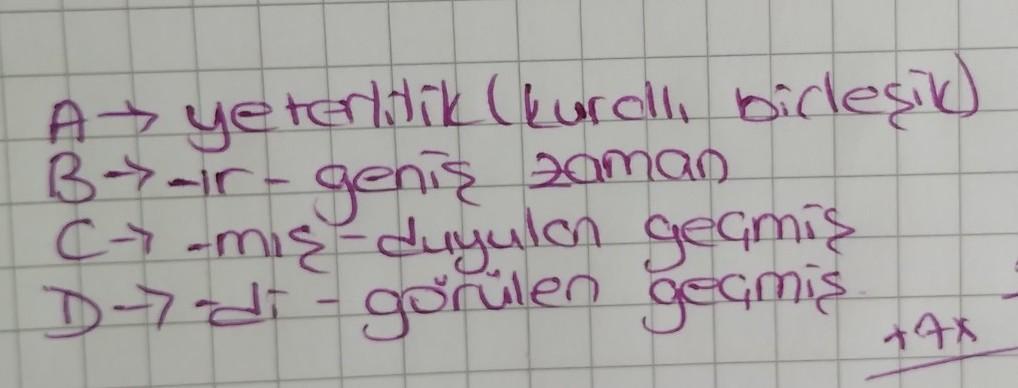 A → yeterlilik (kurallı birleşik)
B → -ır - geniş zaman
C → -mış - duyulan geçmiş
D → -di - görülen geçmiş